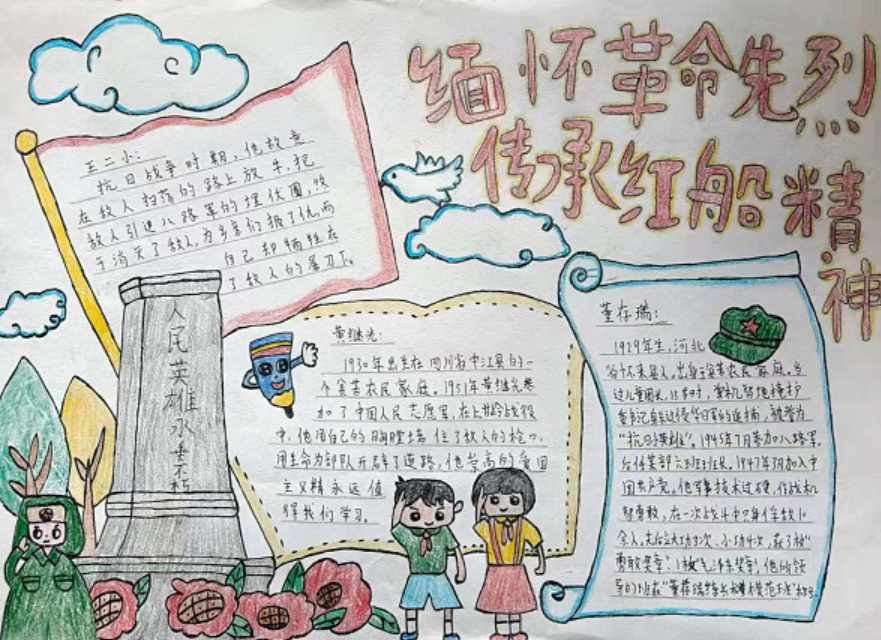 缅怀革命先烈
传承红船精神
王二小:
抗日战争时期,他故意
在敌人扫荡的路上放牛,把
敌人引进八路军的埋伏圈,终
于消灭了敌人,为乡亲们报了仇,而
自己却牺牲在
了敌人的屠刀下。
人民英雄永垂不朽
黄继光:
1930年出生在四川省中江县的一
个贫苦农民家庭。1951年黄继光参
加了中国人民志愿军,在上甘岭战役
中,他用自己的胸膛堵住了敌人的枪口,
用生命为部队开辟了道路,他崇高的爱国
主义精永远值
得我们学习。
董存瑞:
1929年生,河北
省怀来县人,出身于贫苦农民家庭。当
过儿童团长,13岁时,曾机智地掩护
区委书记躲过侵华日军的追捕,被誉为
"抗日小英雄"。1945年7月参加八路军。
后任某部六班班长。1947年3月加入中
国共产党。他军事技术过硬,作战机
智勇敢,在一次战斗中只身俘敌10
余人。先后立大功3次、小功4次,获3枚"
勇敢奖章"、1枚"毛泽东奖章"。他所领
导的班获"董存瑞练兵模范班"称号。